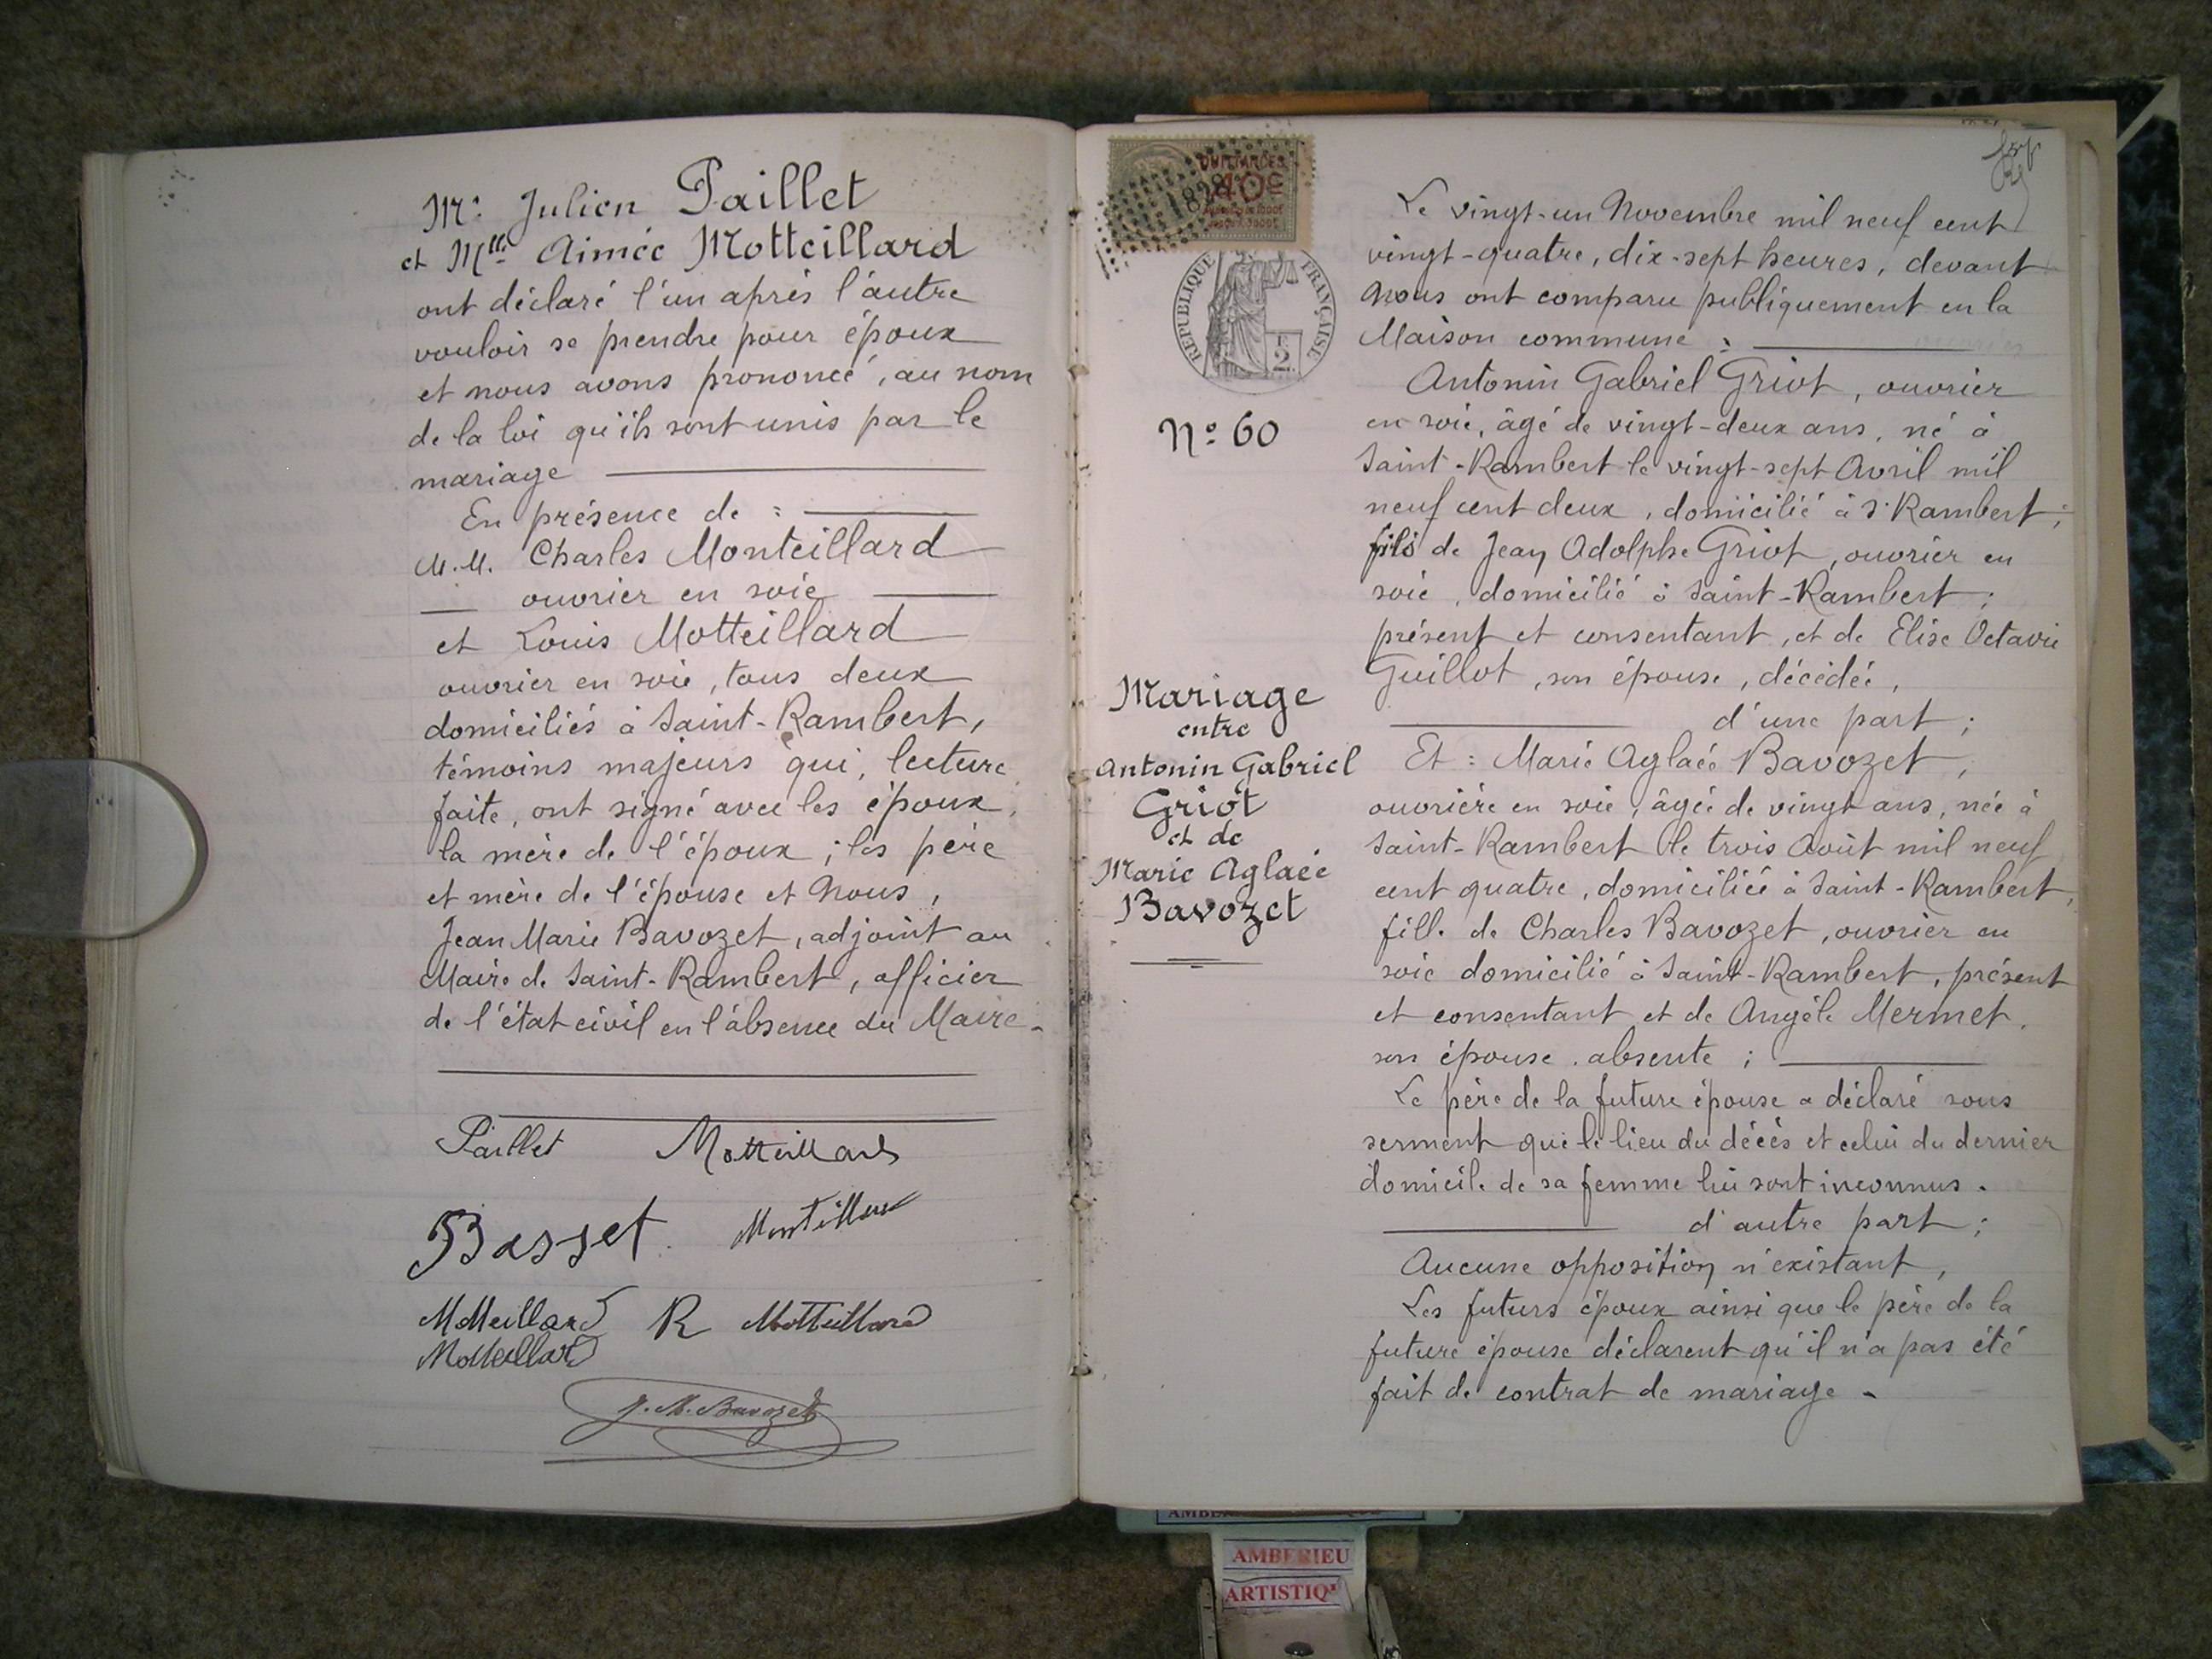 Mr Julien Paillet
et Mlle Aimée Motteillard
ont déclaré l'un après l'autre
vouloir se prendre pour époux
et nous avons prononcé, au nom
de la loi qu'ils sont unis par le
mariage
En présence de :
M.M. Charles Monteillard
ouvrier en soie
et Louis Motteillard
ouvrier en soie, tous deux
domiciliés à Saint-Rambert,
témoins majeurs qui, lecture
faite, ont signé avec les époux,
la mère de l'époux ; les père
et mère de l'épouse et Nous,
Jean Marie Bavozet, adjoint au
Maire de Saint-Rambert, officier
de l'état civil en l'absence du Maire.
Paillet Motteillard
Basset Monteillard
Motteillard R Motteillard
Motteillard
J. M. Bavozet
QUITTANCES
40c
RÉPUBLIQUE FRANÇAISE
2F
N° 60
Mariage
entre
Antonin Gabriel
Griot
et de
Marie Aglaée
Bavozet
Le vingt-un Novembre mil neuf cent
vingt-quatre, dix-sept heures, devant
Nous ont comparu publiquement en la
Maison commune :
Antonin Gabriel Griot, ouvrier
en soie, âgé de vingt-deux ans, né à
Saint-Rambert le vingt-sept Avril mil
neuf cent deux, domicilié à St Rambert ;
fils de Jean Adolphe Griot, ouvrier en
soie, domicilié à Saint-Rambert ;
présent et consentant, et de Elise Octavie
Guillot, son épouse, décédée,
d'une part ;
Et : Marie Aglaée Bavozet,
ouvrière en soie, âgée de vingt ans, née à
Saint-Rambert le trois Août mil neuf
cent quatre, domiciliée à Saint-Rambert,
fille de Charles Bavozet, ouvrier en
soie domicilié à Saint-Rambert, présent
et consentant et de Angèle Mermet,
son épouse, absente ;
Le père de la future épouse a déclaré sous
serment que le lieu du décès et celui du dernier
domicile de sa femme lui sont inconnus.
d'autre part ;
Aucune opposition n'existant,
Les futurs époux ainsi que le père de la
future épouse déclarent qu'il n'a pas été
fait de contrat de mariage.
AMBERIEU
ARTISTIQ